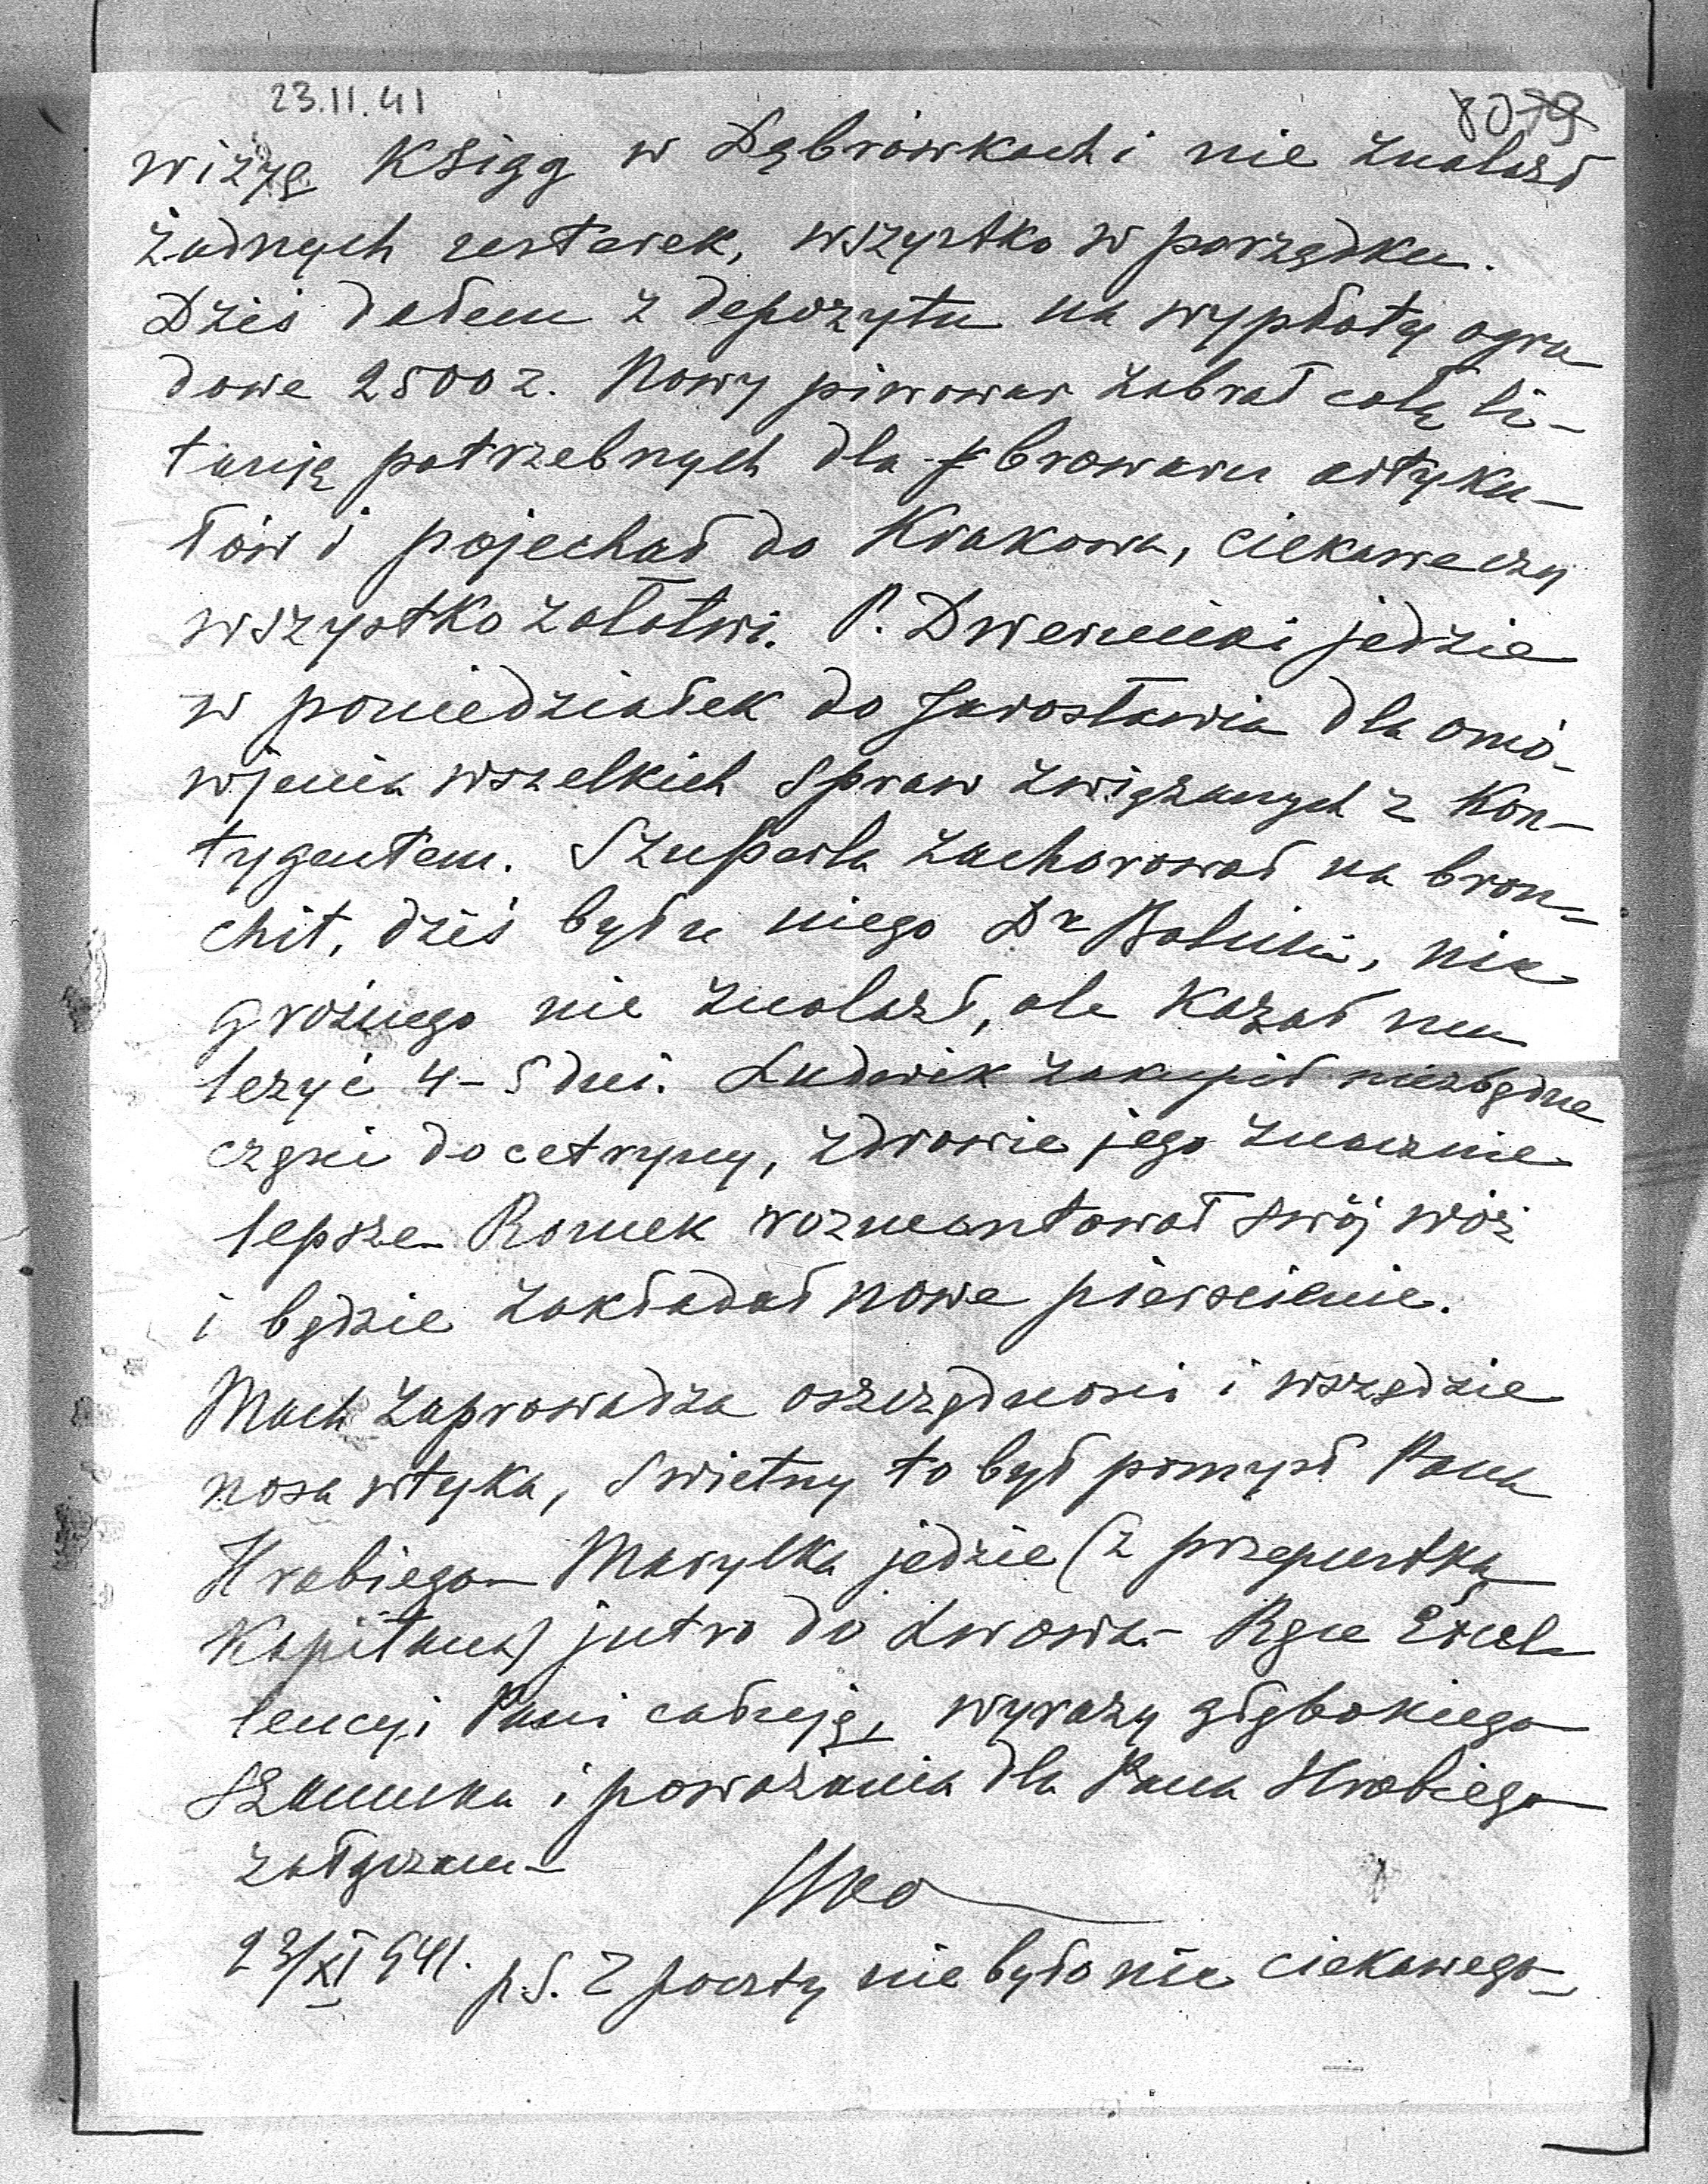 23.11.41
80 79
wizyę Ksiąg w Dąbrówkach i nie znalazł
żadnych usterek, wszystko w porządku.
Dziś dałem z depozytu na wypłaty ogro
dowe 2500 z. Nowy piwowar zabrał całą li-
tanję potrzebnych dla browaru artyku-
łów i pojechał do Krakowa, ciekawe czy
wszystko załatwi. P. Dwernicki jedzie
w poniedziałek do Jarosławia dla omó-
wjenia wszelkich spraw związanych z Kon-
tygentem. Szuperla zachorował na bron-
chit, dziś był u niego Dr nic
groźnego nie znalazł, ale kazał mu
leżyć 4-5 dni. Ludwik zakupił niezbędne
częśći do cetryny, zdrowie jego znacznie
lepsze – Romek rozmontował swój wóz
i będzie zakładał nowe pierścienie.
Mach zaprowadza oszczędności i wszędzie
nosa wtyka, świetny to był pomysł Pana
Hrabiego – Marylka jedzie (z przepustką
Kapitana) jutro do Lwowa – Ręce Excel
lencyi Pani całuję, wyrazy głębokiego
szacunku i poważania dla Pana Hrabiego
załączam –
23/XI 941. p.S. Z poczty nie było nic ciekawego –